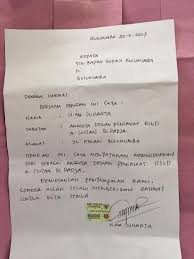 BULUKUMBA 20-2-2017
KEPADA
YTH BAPAK BUPATI BULUKUMBA
DI
BULUKUMBA
DENGAN HORMAT.
BERSAMA DENGAN INI SAYA :
NAMA : H.AM. SUHARTA
JABATAN : ANGGOTA DEWAN PENGAWAT RSUD
A SULTAN DI RADJA.
ALAMAT : JL BULUKUMBA
DENGAN INI SAYA MENYATAKAN MENGUNDURKAN
DIRI SEBAGAI ANGGOTA DEWAN PENGAWAT RSUD
A SULTAN DI RADJA.
DEMIKIANLAH PENYAMPAIAN KAMI.
SEMOGA ALLAH SELALU MEMBERIKAN RAHMAT
UNTUK KITA SEMUA
6000
H.AM. SUHARTA